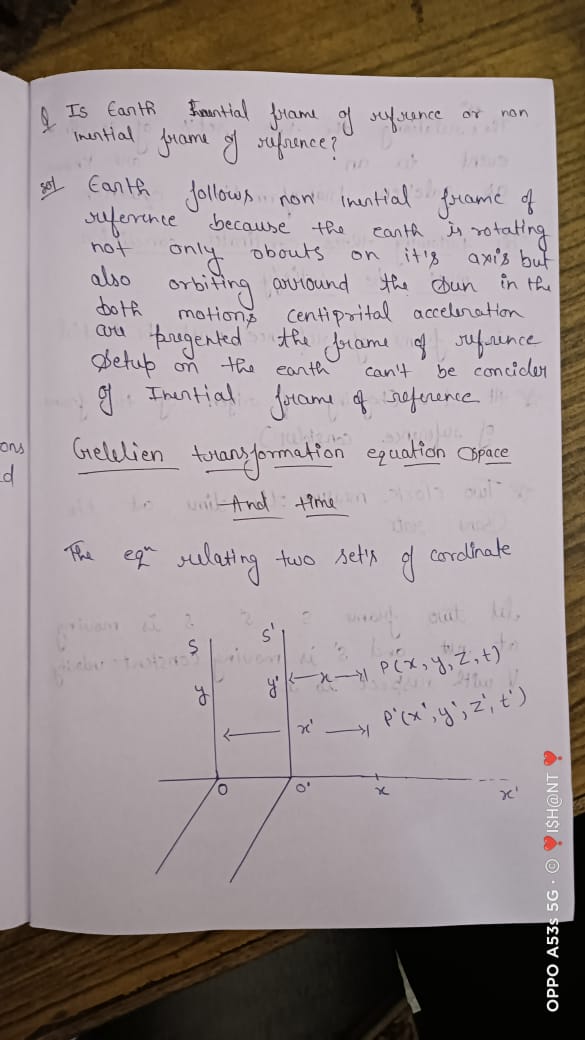 Q Is Earth Inential frame of refrence or non
inential frame of refrence?
sol Earth follows non inential frame of
reference because the earth is rotating
not only obouts on it's axis but
also orbiting arround the Sun in the
both motions centiprital acceleration
are pregented the frame of refrence
Setup on the earth can't be concider
of Inential frame of reference
ons
d
Gelelien transformation equation space
And time
The eqⁿ relating two set's of cordinate
S
S'
y
y'
x P(x, y, z, t)
x' P'(x', y', z', t')
O O' x x'
OPPO A53s 5G · © ISH@NT